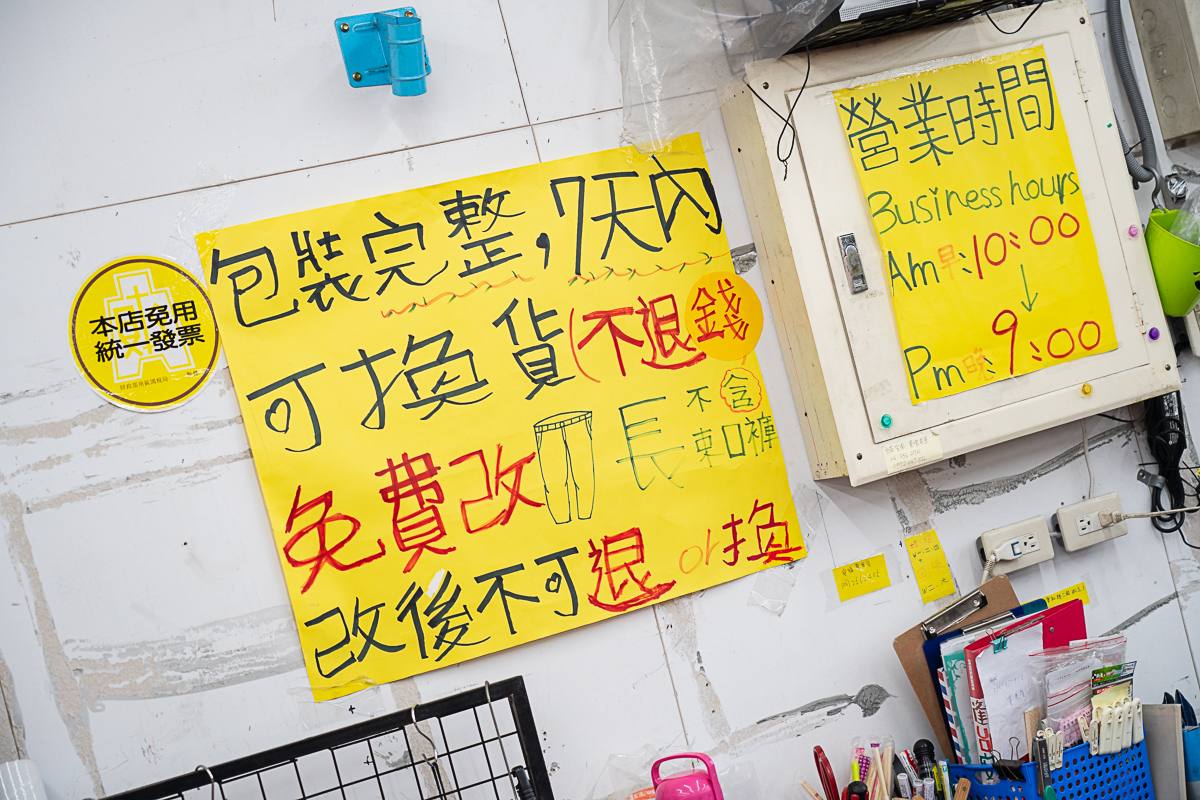 本店免用
統一發票
包裝完整,7天內
可換貨(不退錢
免費改 長 不含
束口褲
改後不可退or換
營業時間
Business hours
Am早:10:00
↓
Pm晚:9:00